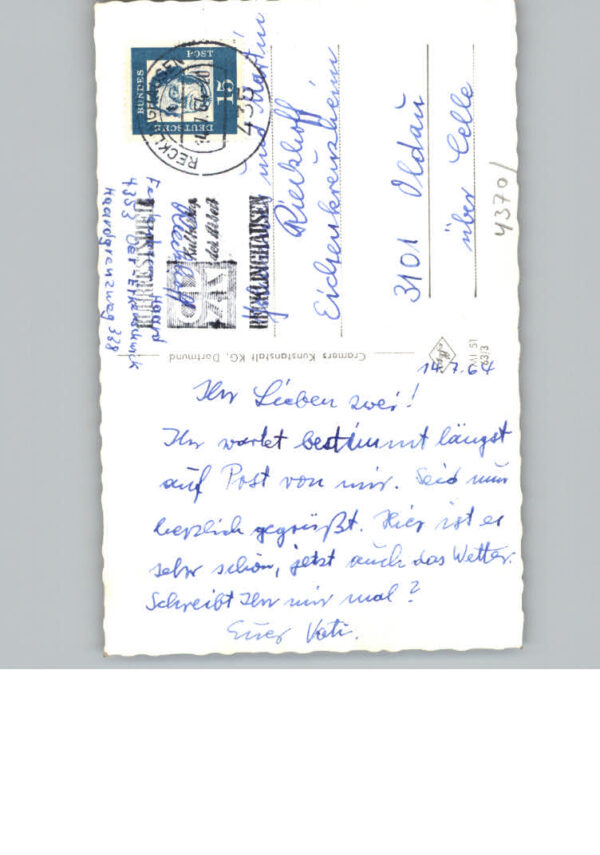 14.7.64
Ihr Lieben zwei!
Ihr wartet bestimmt längst
auf Post von mir. Seid nun
herzlich gegrüßt. Hier ist es
sehr schön, jetzt auch das Wetter.
Schreibt Ihr mir mal?
Euer Vati.
und Martin
Rieckhoff
Eichenkreuzheim
3101 Oldau
über Celle
4370/
DEUTSCHE
BUNDES
POST
15
RECKLINGHAUSEN
435
RUHRFESTSPIELE
RECKLINGHAUSEN
Haard
4353 Oer-Erkenschwick
Haardgrenzweg 338
Cramers Kunstanstalt KG, Dortmund
MI 51
63/3